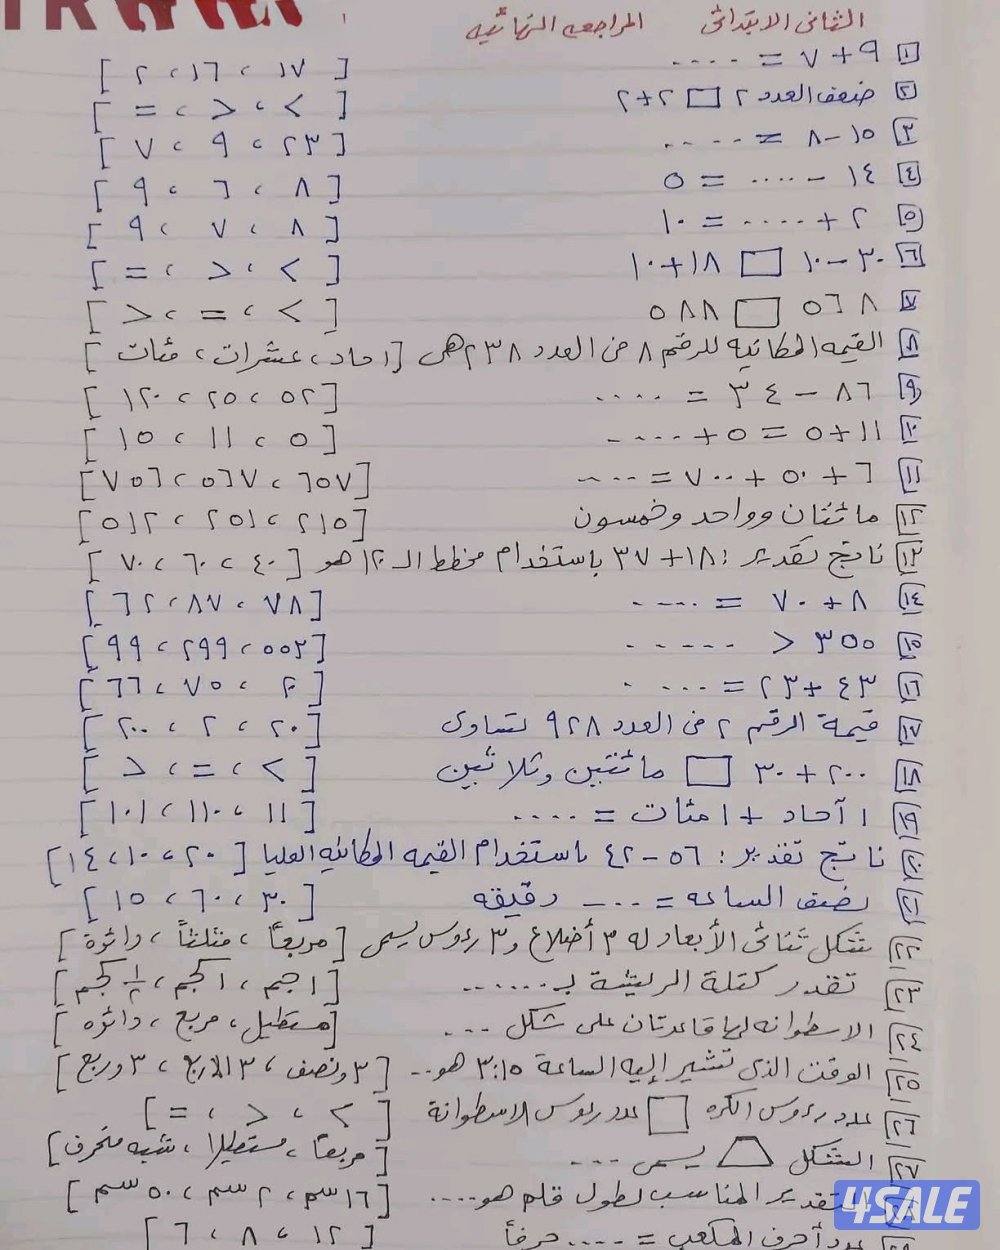 الثانى الابتدائى المراجعه النهائيه
١ ٩ + ٧ = .... [ ١٧ ، ١٦ ، ٢ ]
٢ ضعف العدد ٢ □ ٢+٢ [ > ، < ، = ]
٣ ١٥ - ٨ = ..... [ ٢٣ ، ٩ ، ٧ ]
٤ ١٤ - .... = ٥ [ ٨ ، ٦ ، ٩ ]
٥ ٢ + .... = ١٠ [ ٨ ، ٧ ، ٩ ]
٦ ٣٠ - ١٠ □ ١٨+١٠ [ > ، < ، = ]
٧ ٥٦٨ □ ٥٨٨ [ > ، = ، < ]
٨ القيمه المكانيه للرقم ٨ من العدد ٢٣٨ هى [ احاد ، عشرات ، مئات ]
٩ ٨٦ - ٣٤ = .... [ ٥٢ ، ٢٥ ، ١٢٠ ]
١٠ ١١+٥ = ٥+.... [ ٥ ، ١١ ، ١٥ ]
١١ ٦ + ٥٠ + ٧٠٠ = .... [ ٦٥٧ ، ٥٦٧ ، ٧٥٦ ]
١٢ مائتان وواحد وخمسون [ ٢١٥ ، ٢٥١ ، ٥١٢ ]
١٣ ناتج تقدير : ١٨+٣٧ باستخدام مخطط الـ ١٢٠ هو [ ٤٠ ، ٦٠ ، ٧٠ ]
١٤ ٨ + ٧٠ = .... [ ٧٨ ، ٨٧ ، ٦٢ ]
١٥ ٣٥٥ > ..... [ ٥٥٢ ، ٢٩٩ ، ٩٩ ]
١٦ ٤٣ + ٢٣ = .... [ ٢٠ ، ٧٥ ، ٦٦ ]
١٧ قيمة الرقم ٢ من العدد ٩٢٨ تساوى [ ٢٠ ، ٢ ، ٢٠٠ ]
١٨ ٢٠٠ + ٣٠ □ مائتين وثلاثين [ > ، = ، < ]
١٩ ١ آحاد + ١ مئات = .... [ ١١ ، ١١٠ ، ١٠١ ]
٢٠ ناتج تقدير : ٥٦ - ٤٢ باستخدام القيمه المكانيه العليا [ ٢٠ ، ١٠ ، ١٤ ]
٢١ نصف الساعه = .... دقيقه [ ٣٠ ، ٦٠ ، ١٥ ]
٢٢ شكل ثنائى الأبعاد له ٣ أضلاع و٣ رؤوس يسمى [ مربعاً ، مثلثاً ، دائرة ]
٢٣ تقدر كتلة الريشة بـ...... [ ١ جم ، ١ كجم ، ½ كجم ]
٢٤ الاسطوانه لها قاعدتان على شكل .... [ مستطيل ، مربع ، دائره ]
٢٥ الوقت الذى تشير إليه الساعة ٣:١٥ هو.. [ ٣ ونصف ، ٣ الاربع ، ٣ وربع ]
٢٦ عدد رءوس الكره □ عدد رءوس الاسطوانة [ > ، < ، = ]
الشكل يسمى .... [ مربعاً ، مستطيلا ، شبه منحرف ]
التقدير المناسب لطول قلم هو.... [ ١٦ سم ، ٢ سم ، ٥٠ سم ]
عدد أحرف المكعب = .... حرفاً [ ١٢ ، ٨ ، ٦ ]
4SALE